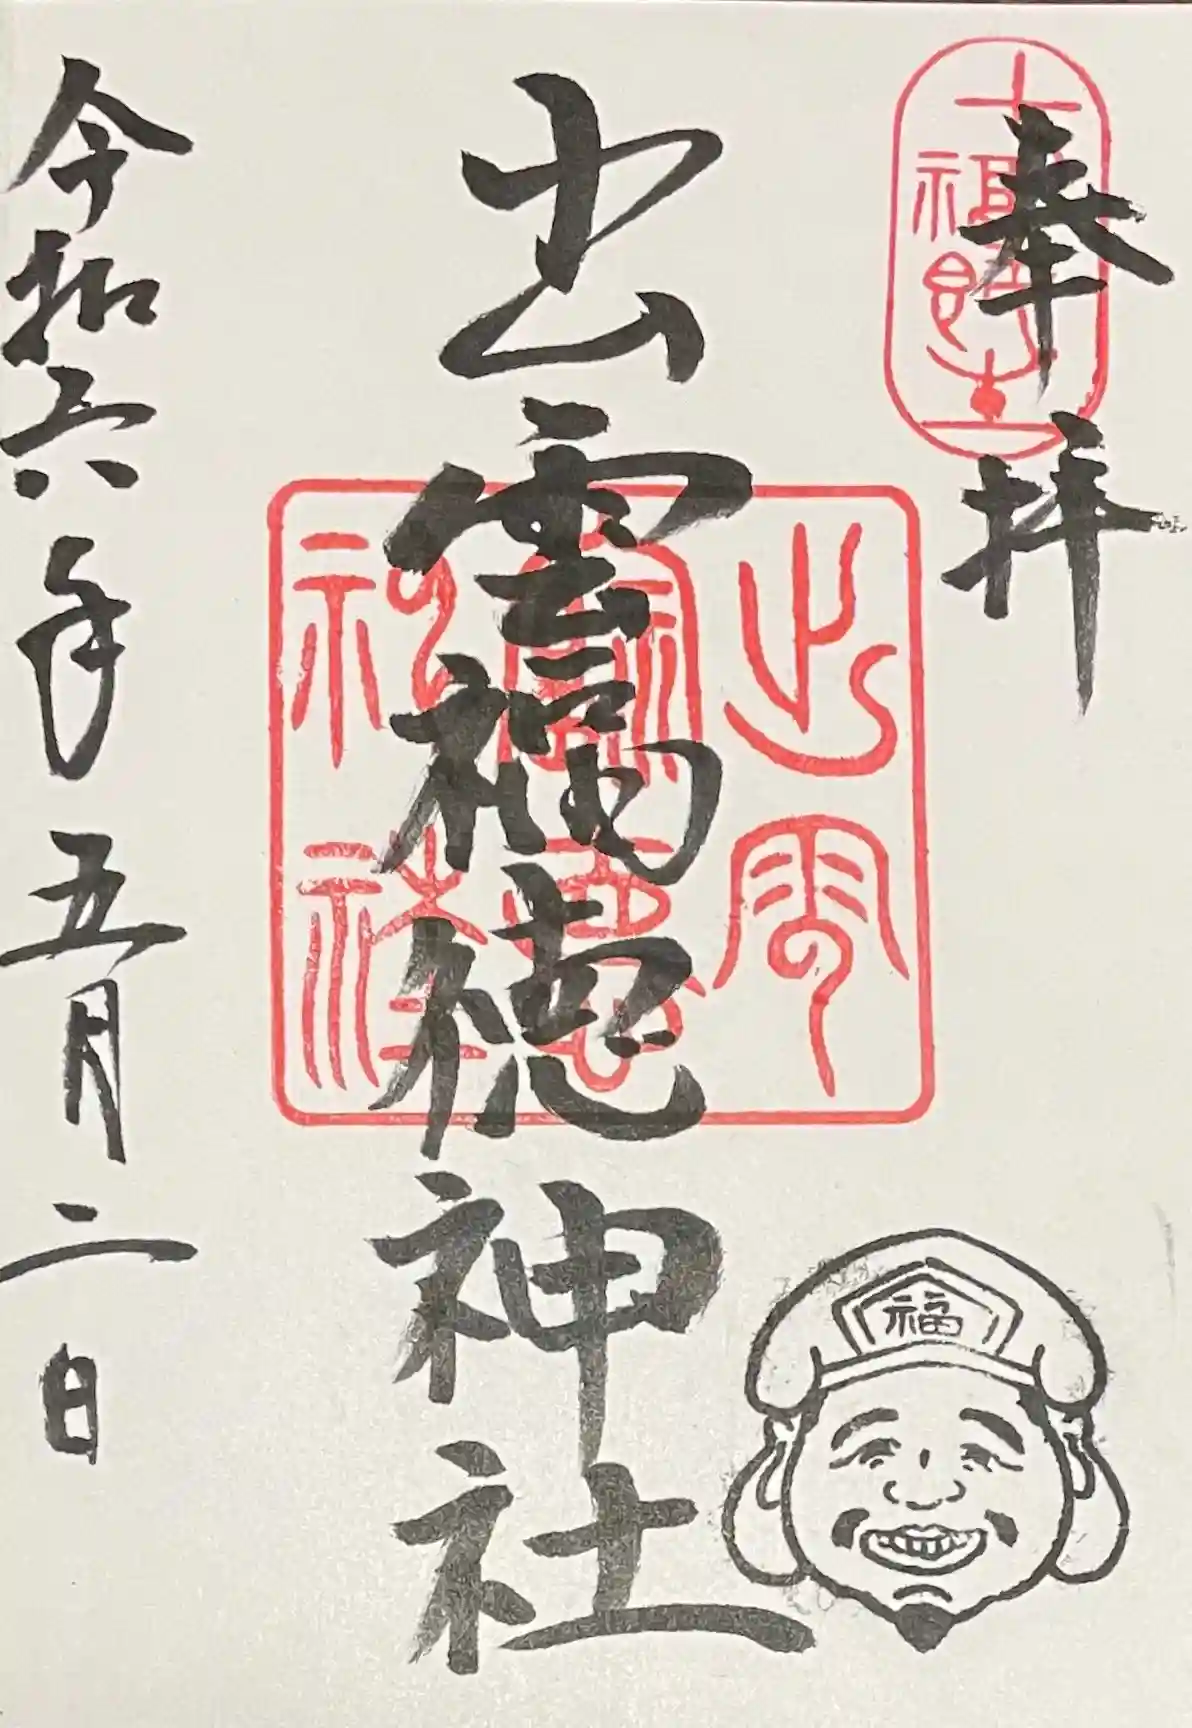 奉拝
出雲福徳神社
令和六年五月二日
出雲
福徳
神社
福